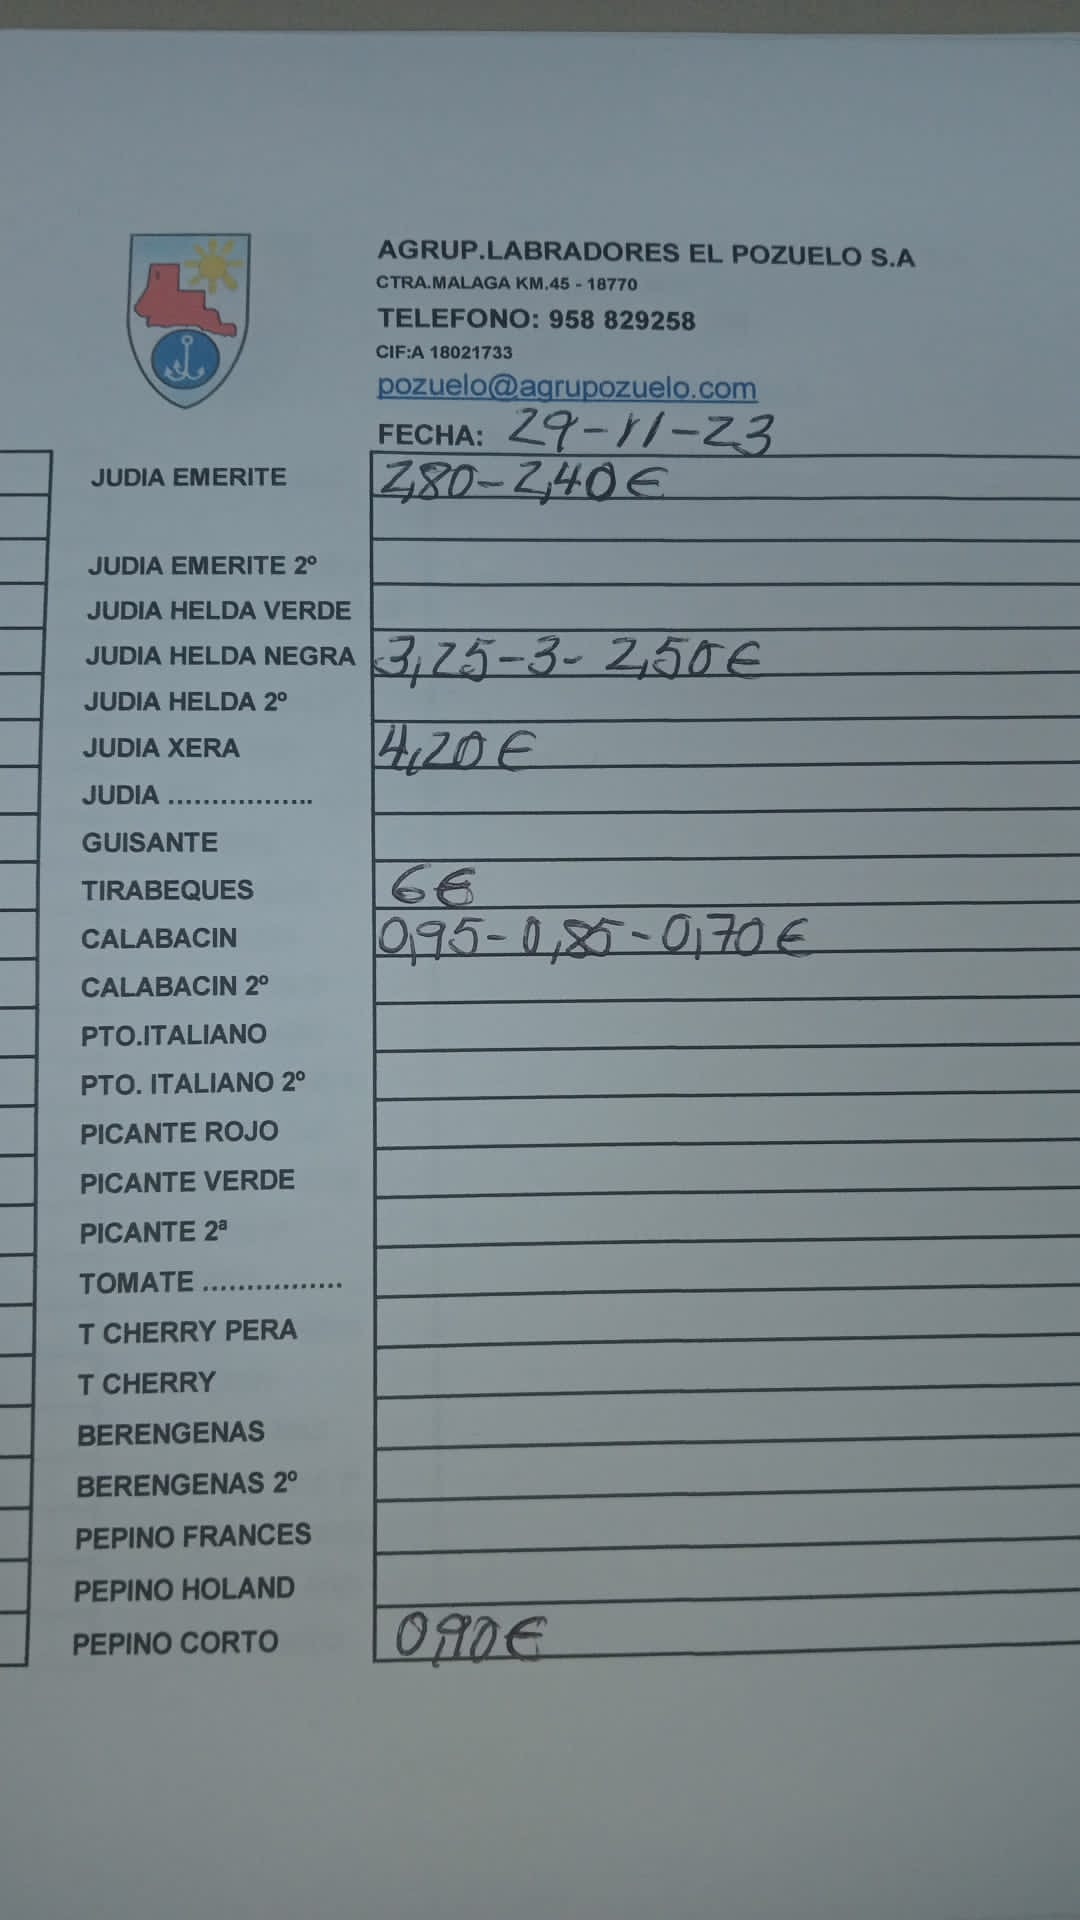 AGRUP.LABRADORES EL POZUELO S.A
CTRA.MALAGA KM.45 - 18770
TELEFONO: 958 829258
CIF:A 18021733
pozuelo@agrupozuelo.com
FECHA: 29-11-23
JUDIA EMERITE 2,80-2,40€
JUDIA EMERITE 2º
JUDIA HELDA VERDE
JUDIA HELDA NEGRA 3,25-3- 2,50€
JUDIA HELDA 2º
JUDIA XERA 4,20€
JUDIA .................
GUISANTE
TIRABEQUES 6€
CALABACIN 0,95-0,85-0,70€
CALABACIN 2º
PTO.ITALIANO
PTO. ITALIANO 2º
PICANTE ROJO
PICANTE VERDE
PICANTE 2ª
TOMATE ................
T CHERRY PERA
T CHERRY
BERENGENAS
BERENGENAS 2º
PEPINO FRANCES
PEPINO HOLAND
PEPINO CORTO 0,90€